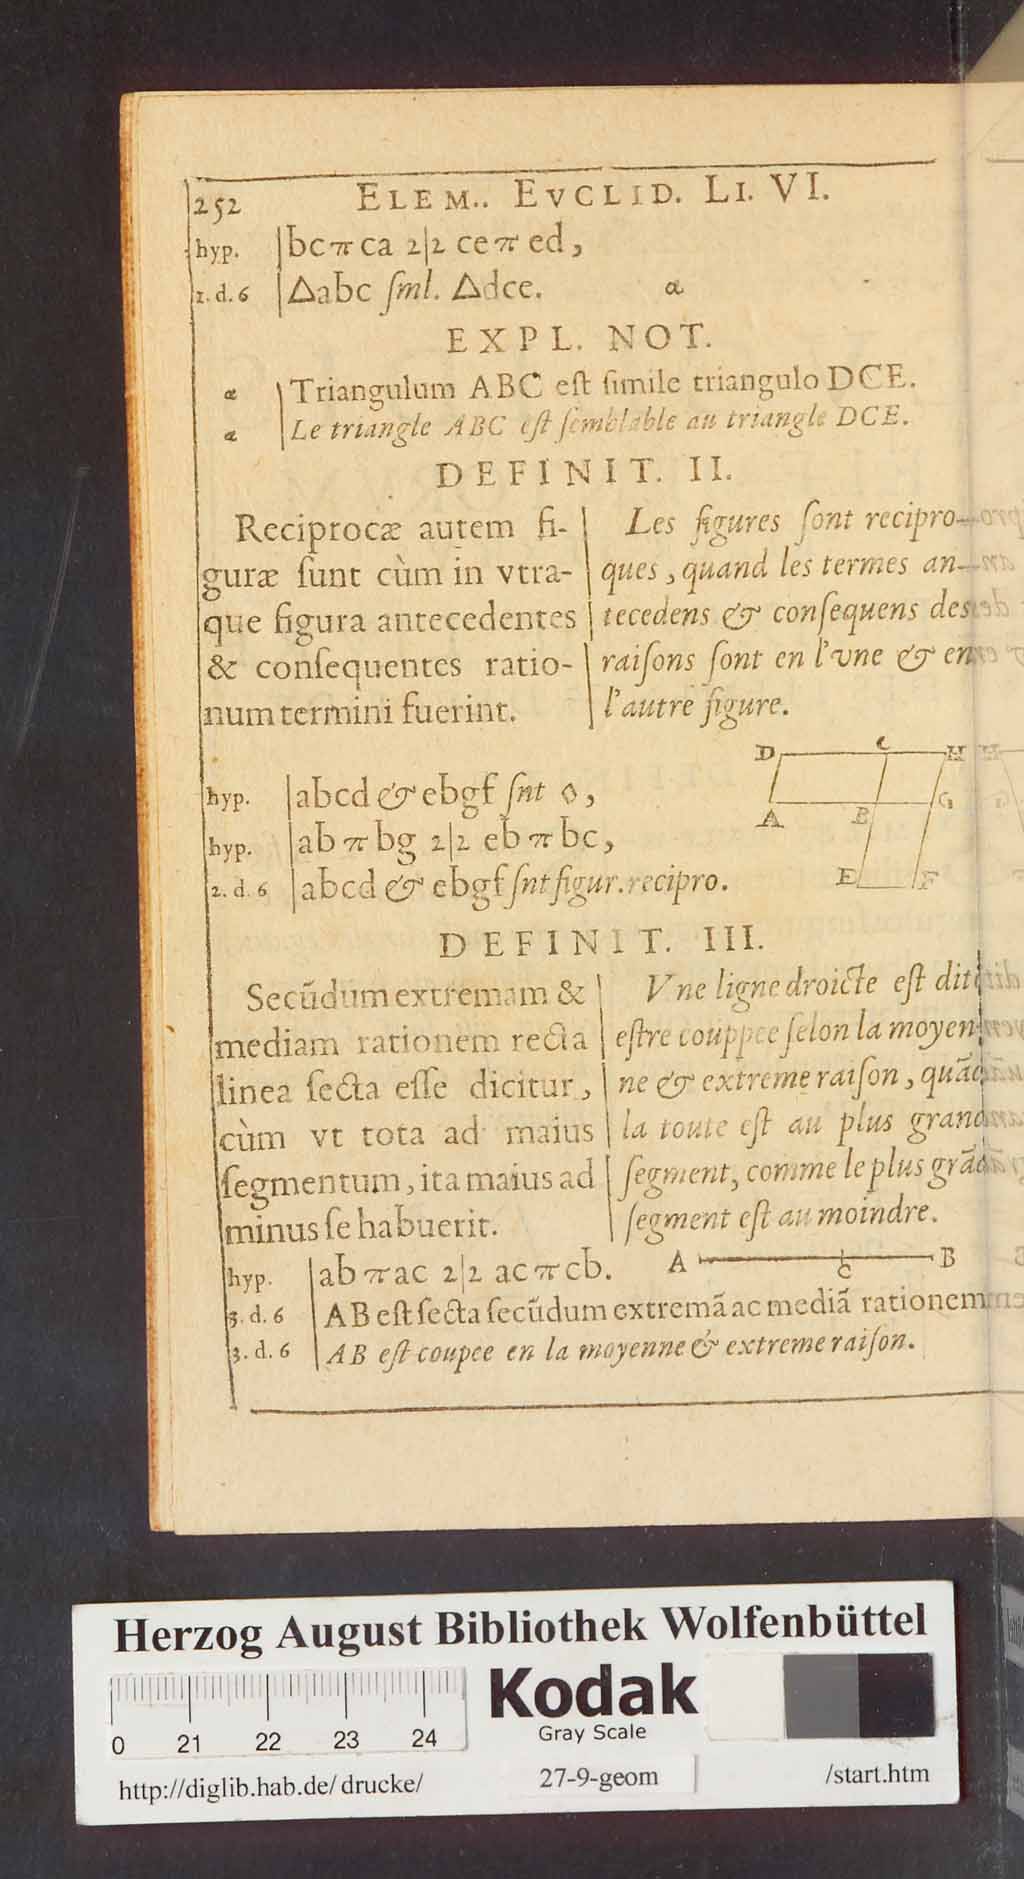 252 ELEM.. EVCLID. LI. VI.
hyp. bc π ca 2|2 ce π ed,
1. d. 6 Δabc ſml. Δdce. α
EXPL. NOT.
α Triangulum ABC eſt ſimile triangulo DCE.
α Le triangle ABC eſt ſemblable au triangle DCE.
DEFINIT. II.
Reciprocæ autem fi-
guræ ſunt cùm in vtra-
que figura antecedentes
& conſequentes ratio-
num termini fuerint.
Les figures ſont recipro-
ques, quand les termes an-
tecedens & conſequens des
raiſons ſont en l'vne & en
l'autre figure.
D C H
A B G
E F
hyp. abcd & ebgf ſnt ◊,
hyp. ab π bg 2|2 eb π bc,
2. d. 6 abcd & ebgf ſnt figur. recipro.
DEFINIT. III.
Secūdum extremam &
mediam rationem recta
linea ſecta eſſe dicitur,
cùm vt tota ad maius
ſegmentum, ita maius ad
minus ſe habuerit.
Vne ligne droicte eſt dit
eſtre couppee ſelon la moyen
ne & extreme raiſon, quād
la toute eſt au plus grand
ſegment, comme le plus grād
ſegment eſt au moindre.
hyp. ab π ac 2|2 ac π cb. A C B
3. d. 6 AB eſt ſecta ſecūdum extremā ac mediā rationem
3. d. 6 AB eſt coupee en la moyenne & extreme raiſon.
Herzog August Bibliothek Wolfenbüttel
Kodak
Gray Scale
0 21 22 23 24
http://diglib.hab.de/drucke/ 27-9-geom /start.htm